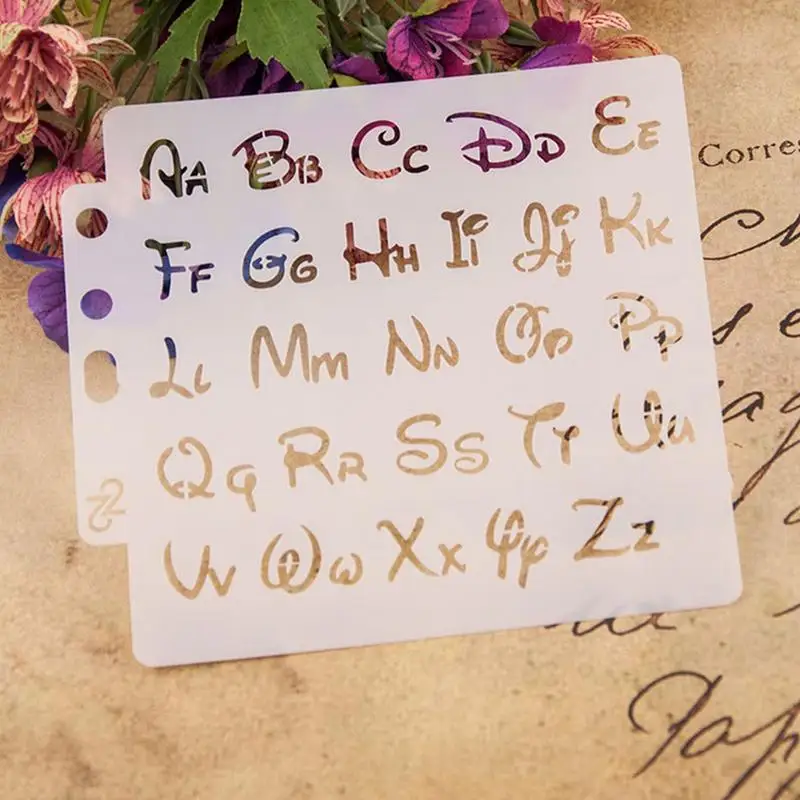 Aa Bb Cc Dd Ee
Corres
Ff Gg Hh Ii Jj Kk
Ll Mm Nn Oo Pp
Qq Rr Ss Tt Uu
Vv Ww Xx Yy Zz